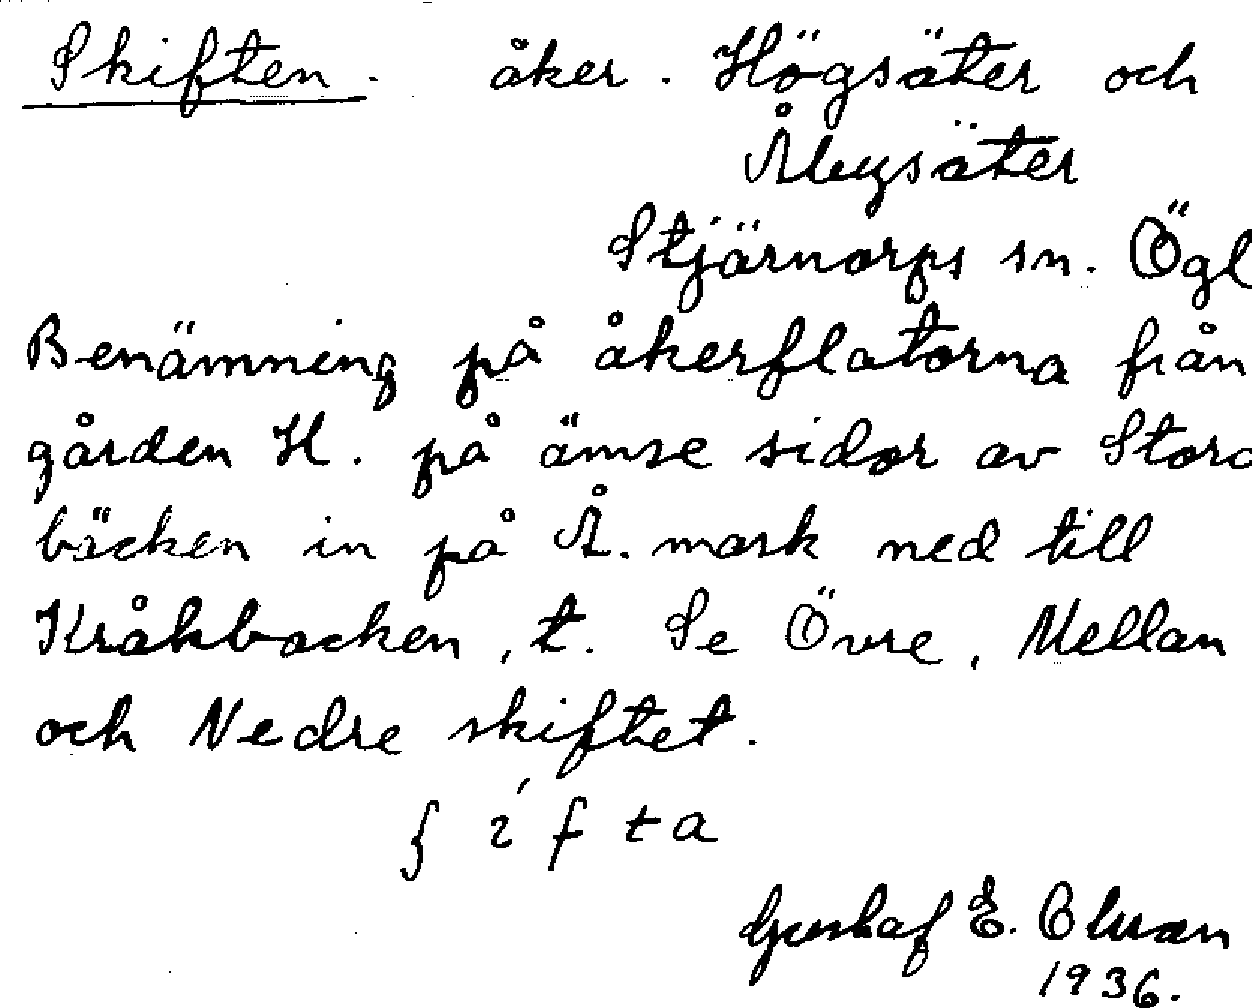 Skiften. åker. Högsäter och
Åbysäter
Stjärnorps sn. Ögl
Benämning på åkerflatorna från
gården H. på ömse sidor av Stora
bäcken in på Å. mark ned till
Kråkbacken, t. Se Övre, Mellan
och Nedre skiftet.
Gustaf E.
1936.